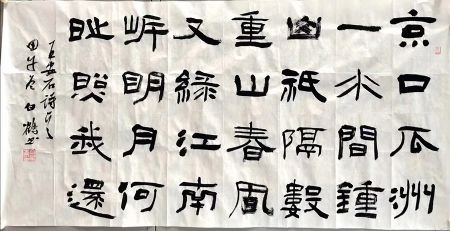 京口瓜洲
一水間鍾
山祗隔數
重山春風
又綠江南
岸明月何
時照我還
王安石詩
白鶴書